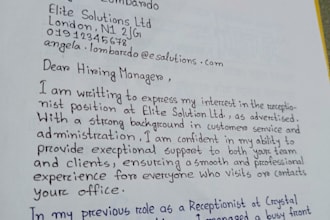 Lombardo
Elite Solutions Ltd
London, N1 2JG
01912345678
angela.lombardo@esalutions.com
Dear Hiring Managers,
I am writting to express my interest in the receptio-
nist position at Elite Solution Ltd., as advertised.
With a strong background in customer service and
administration, I am confident in my ability to
provide execptional support to both your team
and clients, ensuring a smooth and professional
experience for everyone who visits or contacts
your office.
In my previous role as a Receptionist at Crystal
I managed a busy front